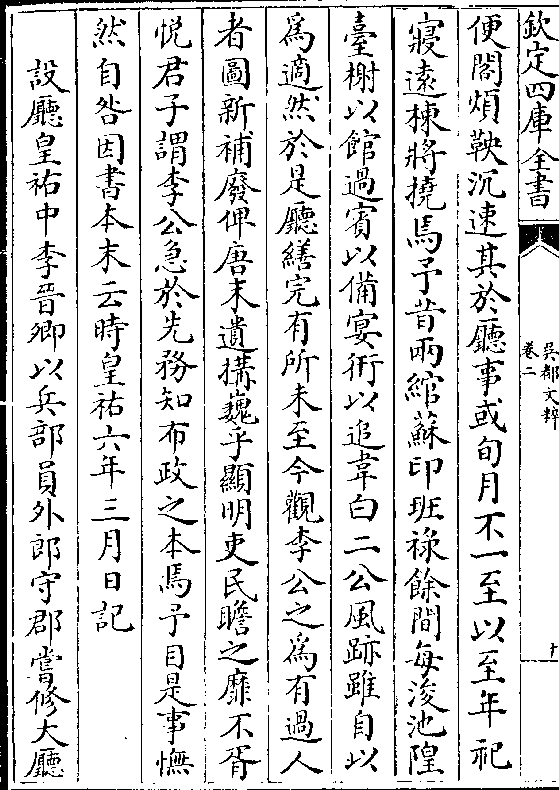 欽定四庫全書
吳都文粹
卷二
十
便閣煩鞅沉速其於廳事或旬月不一至以至年祀
寖遠棟將撓焉予昔兩綰蘇印班祿餘閒每浚池隍
臺榭以館過賓以備宴衎以追韋白二公風跡雖自以
為適然於是廳繕完有所未至今觀李公之為有過人
者圖新補廢俾唐末遺搆巍乎顯明吏民瞻之靡不胥
悅君子謂李公急於先務知布政之本焉予目是事憮
然自咎因書本末云時皇祐六年三月日記
設廳皇祐中李晉卿以兵部員外郎守郡嘗修大廳